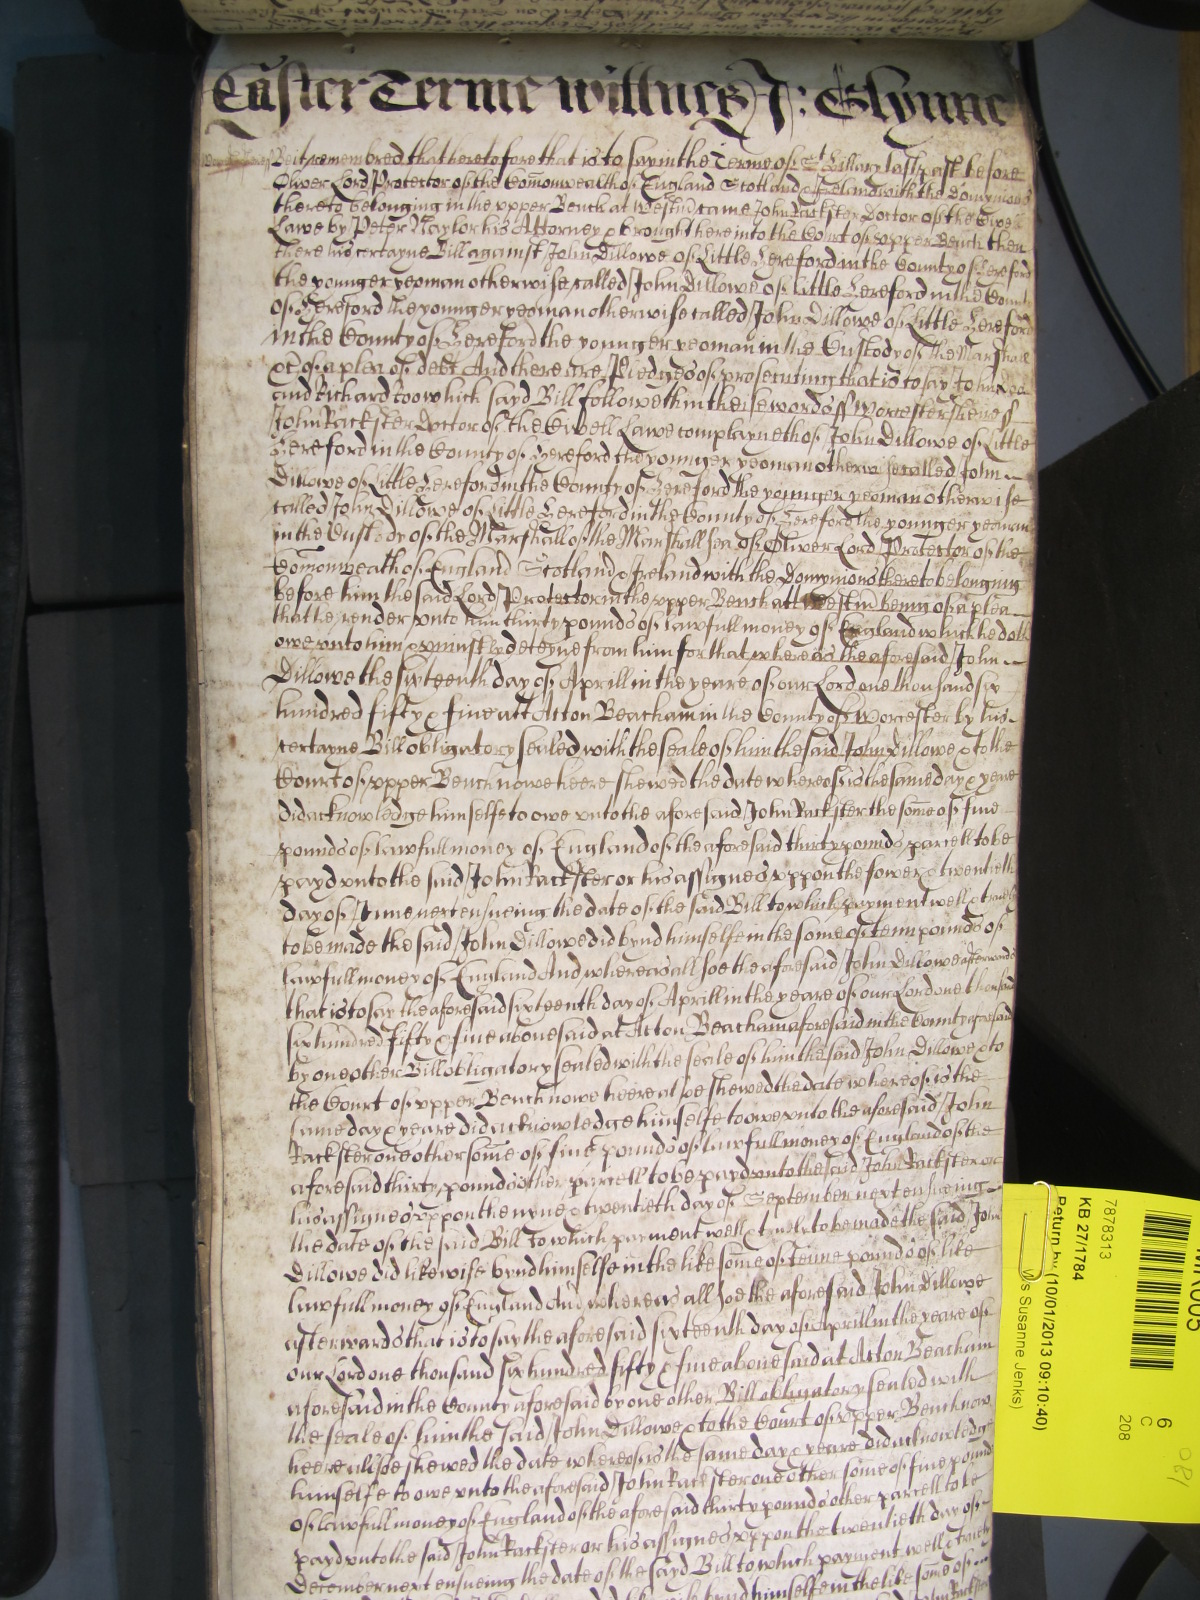 Easter Terme willnes J: Glynne
Be it remembred that heretofore that is to say in the Terme of St Hillary last past before
Oliver Lord Protector of the Comonwealth of England Scotland & Ireland with the Dominions
thereto belonging in the upper Bench at Westm came John Rackster Doctor of the Civell
Lawe by Peter Naylor his Attorney & brought here into the Court of upper Bench then
there his certayne Bill against John Dillowe of Little Hereford in the County of Hereford
the younger yeoman otherwise called John Dillowe of Little Hereford in the County
of Hereford the younger yeoman otherwise called John Dillowe of Little Hereford
in the County of Hereford the younger yeoman in the Custody of the Marshall
&c of a plea of debt And there are Pledges of prosecuting that is to say John Doo
and Richard Roo which sayd Bill followeth in theise words ss Worcestersheire ss
John Rackster Doctor of the Civell Lawe complayneth of John Dillowe of Little
Hereford in the County of Hereford the younger yeoman otherwise called John
Dillowe of Little Hereford in the County of Hereford the younger yeoman otherwise
called John Dillowe of Little Hereford in the County of Hereford the younger yeoman
in the Custody of the Marshall of the Marshallsea of Oliver Lord Protector of the
Comonweath of England Scotland & Ireland with the Domynions thereto belonging
before him the said Lord Protector in the upper Bench att Westm being of a plea
that he render unto him thirty pounds of lawfull money of England which he doth
owe unto him & uniustly deteyne from him for that whereas the aforesaid John
Dillowe the sixteenth day of Aprill in the yeare of our Lord one thousand six
hundred fifty & five att Acton Beacham in the County of Worcester by his
certayne Bill obligatory sealed with the seale of him the said John Dillowe & to the
Court of upper Bench nowe heere shewed the date whereof is the same day & yeare
did acknowledge himselfe to owe unto the aforesaid John Rackster the some of five
pounds of lawfull money of England of the aforesaid thirty pounds parcell to be
payd unto the said John Rackster or his assignes uppon the fower & twentieth
day of June next ensueing the date of the said Bill to which payment well & truely
to be made the said John Dillowe did bynd himselfe in the some of tenn pounds of
lawfull money of England And whereas allsoe the aforesaid John Dillowe afterwards
that is to say the aforesaid sixteenth day of Aprill in the yeare of our Lord one thousand
six hundred fifty & five abovesaid at Acton Beacham aforesaid in the County aforesaid
by one other Bill obligatory sealed with the seale of him the said John Dillowe & to
the Court of upper Bench nowe heere alsoe shewed the date whereof is the
same day & yeare did acknowledge himselfe to owe unto the aforesaid John
Rackster one other some of five pounds of lawfull money of England of the
aforesaid thirty pounds other parcell to be payd unto the said John Rackster or
his assignes uppon the nyne & twentieth day of September next ensueing
the date of the said Bill to which payment well & truely to be made the said John
Dillowe did likewise bynd himselfe in the like some of tenne pounds of like
lawfull money of England And whereas allsoe the aforesaid John Dillowe
afterwards that is to say the aforesaid sixteenth day of Aprill in the yeare of
our Lord one thousand six hundred fifty & five abovesaid at Acton Beacham
aforesaid in the County aforesaid by one other Bill obligatory sealed with
the seale of him the said John Dillowe & to the Court of upper Bench now
heere allsoe shewed the date whereof is the same day & yeare did acknowledge
himselfe to owe unto the aforesaid John Rackster one other some of five pounds
of lawfull money of England of the aforesaid thirty pounds other parcell to be
payd unto the said John Rackster or his assignes uppon the twentieth day of
December next ensueing the date of the sayd Bill to which payment well & truely
bynd himselfe in the like some of
7878313
KB 27/1784
Return by (10/01/2013 09:10:40)
Susanne Jenks)
6
C
208